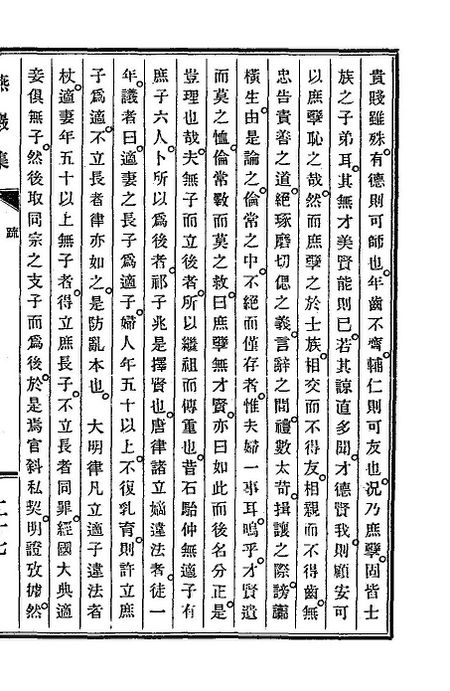 貴賤雖殊有德則可師也年齒不齊輔仁則可友也況乃庶孽固皆士
族之子弟耳其無才美賢能則已若其諒直多聞才德賢我則顧安可
以庶孽恥之哉然而庶孽之於士族相交而不得友相親而不得齒無
忠告責善之道絕琢磨切偲之義言辭之間禮數太苛揖讓之際謗讟
橫生由是論之倫常之中不絕而僅存者惟夫婦一事耳嗚乎才賢遺
而莫之恤倫常斁而莫之救曰庶孽無才賢亦曰如此而後名分正是
豈理也哉夫無子而立後者所以繼祖而傳重也昔石駘仲無適子有
庶子六人卜所以爲後者祁子兆是擇賢也唐律諸立嫡違法者徒一
年議者曰適妻之長子爲適子婦人年五十以上不復乳育則許立庶
子爲適不立長者律亦如之是防亂本也 大明律凡立適子違法者
杖適妻年五十以上無子者得立庶長子不立長者同罪經國大典適
妾俱無子然後取同宗之支子而爲後於是焉官斜私契明證攷據然
燕巖集
疏
二十七